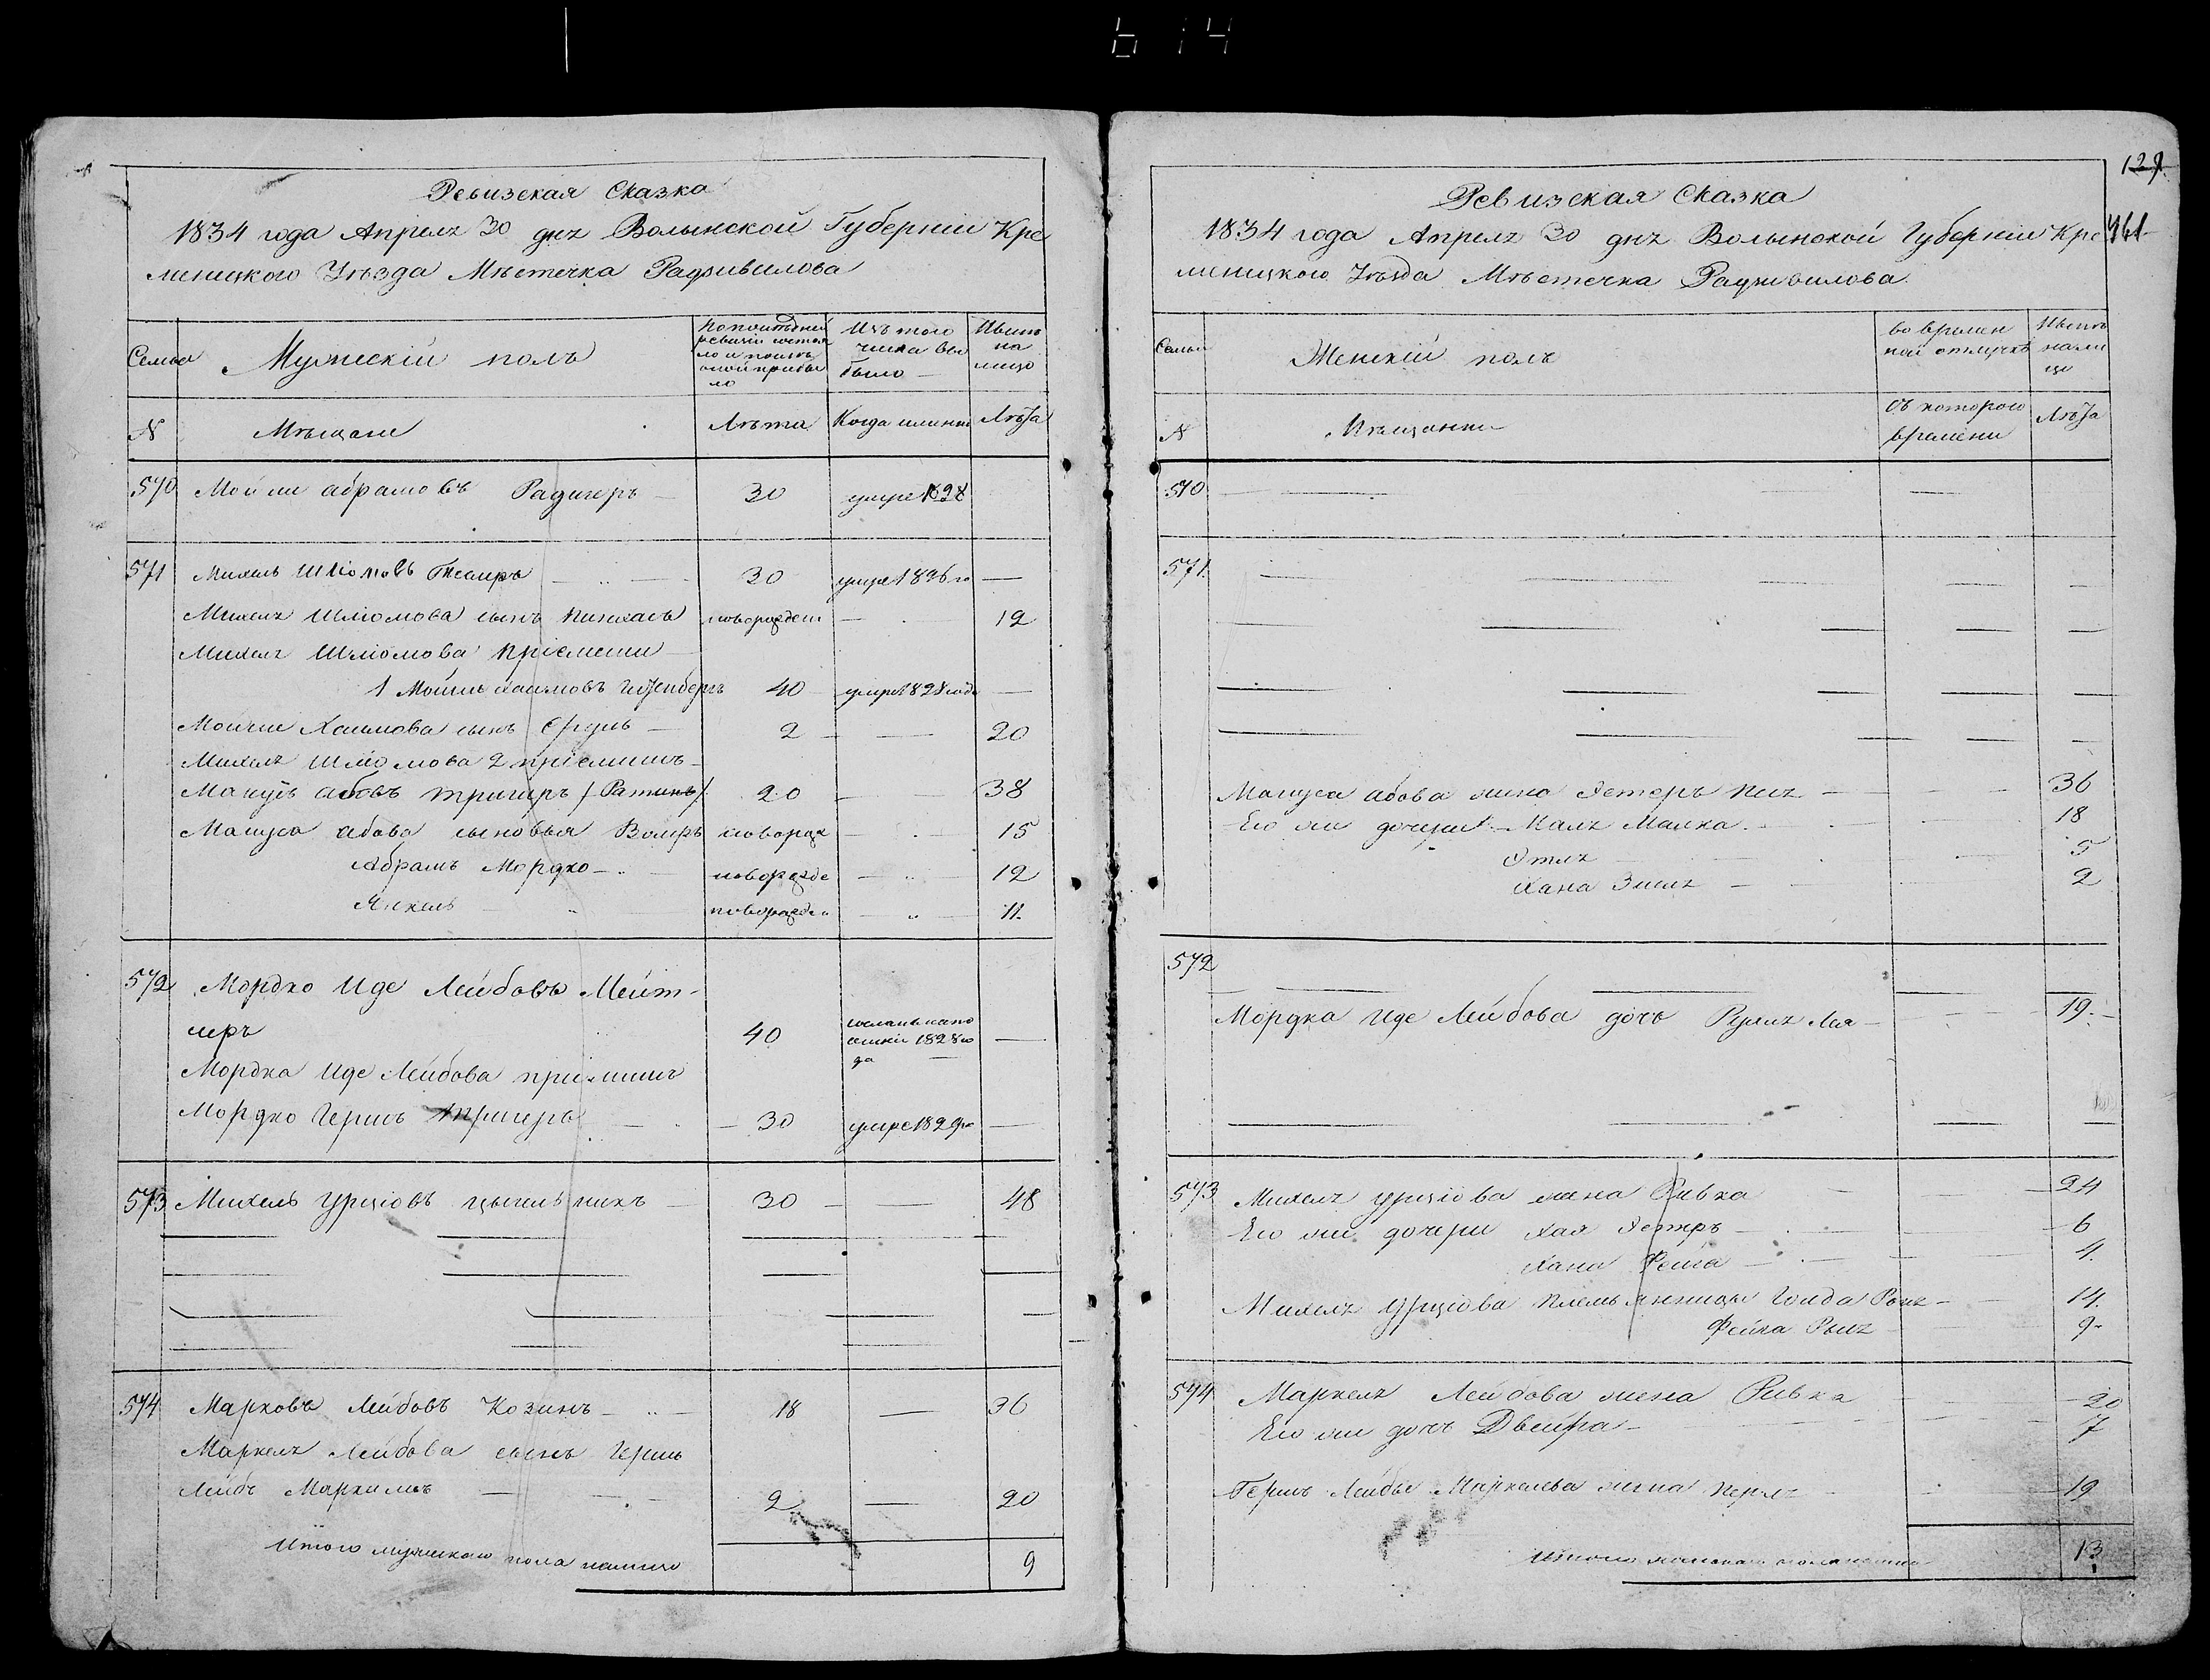 614
Ревизская Сказка
1834 года Апреля 30 дня Волынской Губерніи Кре
менецкого Уѣзда Мѣстечка Радзивилова
Семьи
Мужескій полъ
По послѣдней ревизіи состояло и послѣ оной прибыло
Изъ того числа выбыло
Нынѣ на лицо
N
Мѣщане
Лѣта
Когда именно
Лѣта
570 Мойше Абрамовъ 30 умре 1828
571 Михель Шліомовъ 30 умре 1826 го —
Михеля Шліомова сынъ Пинхасъ новорожден — 12
Михеля Шліомова пріемыши
1 Мойше Хаимовъ 40 умре 1828 года —
Мойше Хаимова сынъ 2 — 20
Михеля Шліомова 2 пріемышъ
Манусъ Абовъ 20 — 38
Мануса Абова сыновья Волфъ новорож — 15
Абрамъ Мордко новорожде — 12
Янкель новорожде — 11
572 Мордко Иде Лейбовъ Мейт-
леръ 40 1828 го
да —
Мордка Иде Лейбова пріемышъ
Мордко Гершъ 30 умре 1829 —
573 Михель Урціовъ Цыгельникъ 30 — 48
574 Марковъ Лейбовъ Козинъ 18 — 36
Маркеля Лейбова сынъ Гершъ
Лейбъ 2 — 20
Итого мужескаго пола налицо 9
129
461
Ревизская Сказка
1834 года Апреля 30 дня Волынской Губерніи Кре
менецкого Уѣзда Мѣстечка Радзивилова
Семьи
Женскій полъ
во времен
ной отлучкѣ
Нынѣ нали
цо
N
Мѣщанки
Съ которого
времени
Лѣта
570
571
Мануса Абова жена Эстеръ 36
Его же дочери Малка 18
Этля 5
Хана 2
572
Мордка Иде Лейбова дочь Лея 19
573 Михеля Урціова жена Ривка 24
Его же дочери Хая Эстеръ 6
Хана Фейга 4
Михеля Урціова племянницы 14
Фейга 9
574 Маркеля Лейбова жена Ривка 20
Его же дочь Двейра 7
Гершъ Лейбы Маркелева жена Перля 19
Итого женскаго пола налицо 13